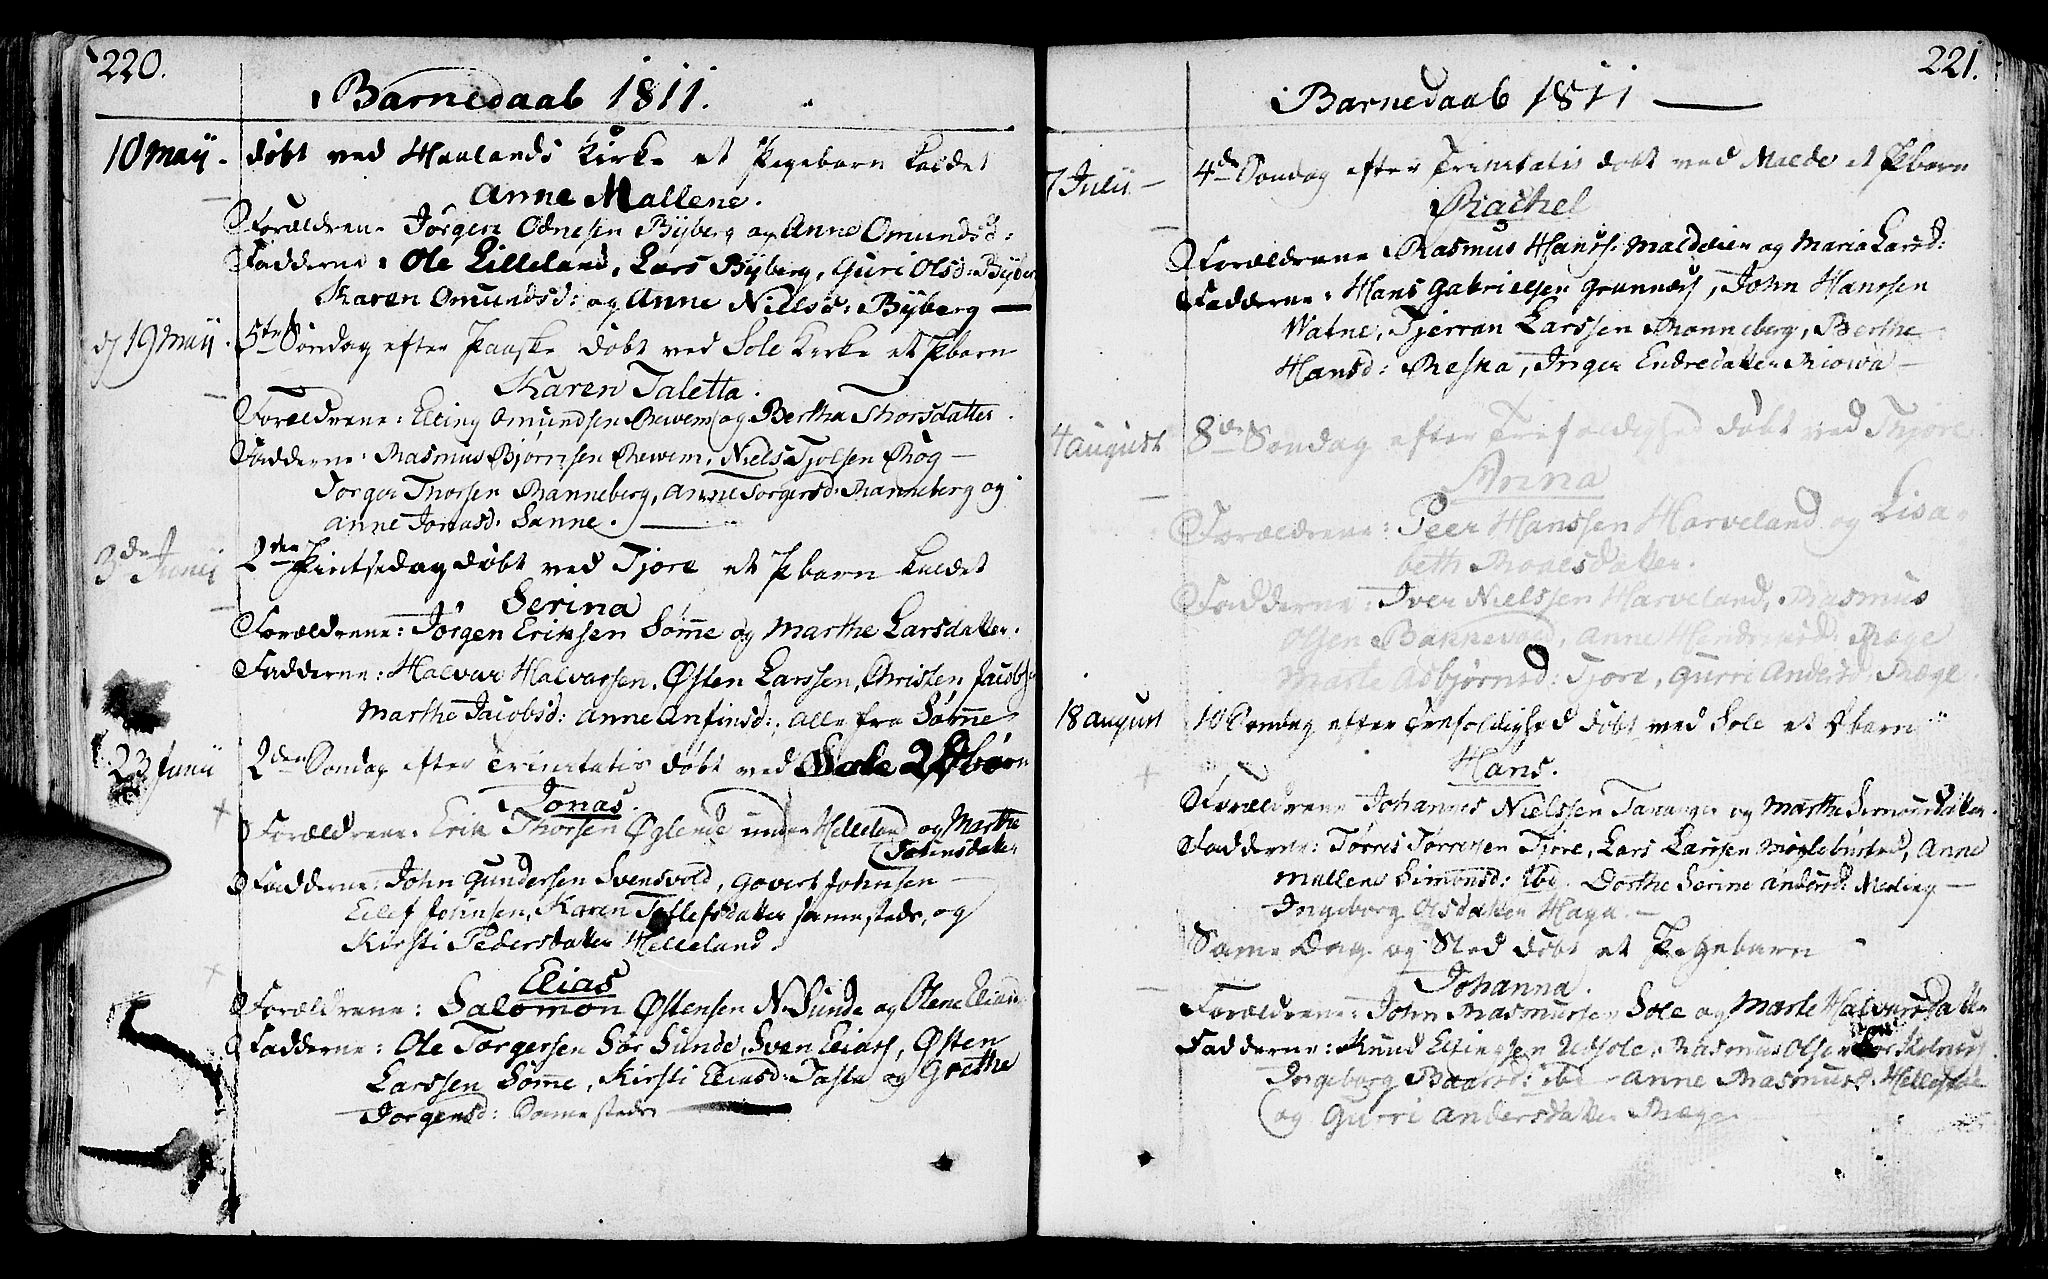 220.
Barnedaab 1811.
10 Maij. døbt ved Haalands Kirke et Pigebarn kaldet
Anne Mallene.
Forældrene Jørgen Odnesen Byberg og Anne Omundsd:
Fadderne: Ole Lilleland, Lars Byberg, Guri Olsd: Byber
Karen Omundsd: og Anne Nielsd: Byberg —
d 19 Maij. 5te Søndag efter Paaske døbt ved Sole Kirke et Pbarn
Karen Taletta.
Forældrene: Elling Omundsen Revem og Bertha Thorsdatter.
Fadderne: Rasmus Bjørnsen Revem, Niels Tjolsen Røg —
Jorgen Thorsen Ranneberg, Anne Torgersd: Ranneberg og
Anne Jonasd: Sanne. —
3de Junij 2den Pintsedag døbt ved Tjore et Pbarn kaldet
Serina
Forældrene: Jørgen Eriksen Sømme og Marthe Larsdatter.
Fadderne: Halvor Halvorsen, Østen Larssen, Christen Jacobs:
Marthe Jacobsd: Anne Anfinsd:, alle fra Sømme
23 Junii 2den Søndag efter Trinitatis døbt ved Sole 2 Dbørn
Jonas.
Forældrene: Erik Thorsen Øglende under Helleland og Martha
Johnsdatter
Fadderne: John Gundersen Svensvold, Govert Johnsen —
Eilef Johnsen, Karen Tollefsdatter sammesteds, og
Kirsti Pedersdatter Helleland.
Elias
Forældrene: Salomon Østensen N. Sunde og Olene Eliasd:
Fadderne: Ole Torgersen Sør Sunde, Sven Eliass, Østen
Larssen Sømme, Kirsti Eliasd: Tasta og Grethe
Jorgensd: Sammesteds —
221.
Barnedaab 1811 —
7 Julii — 4de Søndag efter Trinitatis døbt ved Malde et Pbarn
Rachel
Forældrene Rasmus Hanss: Maldeien og Maria Larsd:
Fadderne: Hans Gabrielsen Grannæs, John Hanssen
Watne, Tjerran Larssen Ranneberg, Berthe
Hansd: Reska, Inger Endredatter Riowa —
4 August 8de Søndag efter Trefoldighed døbt ved Thjore
Arina
Forældrene: Peer Hanssen Harveland og Lisa-
beth Roalsdatter.
Fadderne: Iver Nielssen Harveland, Rasmus
Olsen Bakkevold, Anne Hendriksd: Ræge
Marte Asbjørnsd: Tjore, Gurri Andersd: Ræge.
18 August 10 Søndag efter Trefoldighed døbt ved Sole et Dbarn
Hans.
Forældrene Johannes Nielssen Tananger og Marthe datter.
Fadderne: Tørres Tørresen Tjore, Lars Larssen Møglebusted, Anne
Mallene Simonsd: ibd. Dorthe Serine Andersd: Meling —
Ingeborg Olsdatter Haga. —
Samme Dag og Sted døbt et Pigebarn
Johanna.
Forældrene: John Rasmussen Sole og Marte Halvorsdatter
Fadderne: Knud Ellingsen Utsole, Rasmus Olsen
Ingeborg Baarsd: ibd — Anne Rasmusd: Hellestøe
og Gurri Andersdatter Ræge